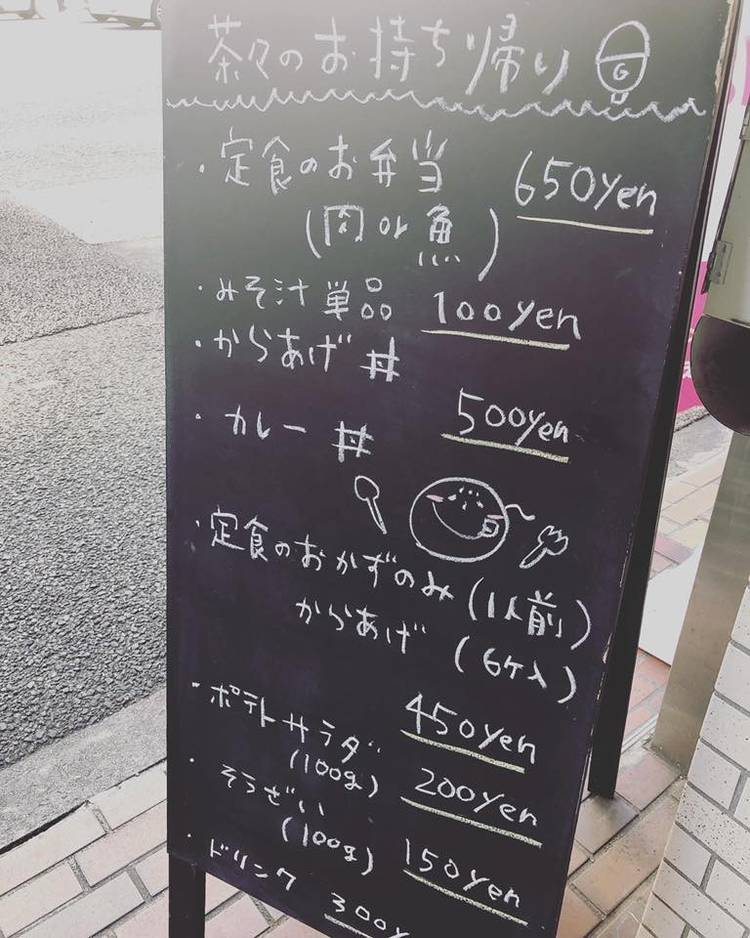 茶々のお持ち帰り G
・定食のお弁当 650yen
(肉or魚)
・みそ汁単品 100yen
・からあげ丼
・カレー丼 500yen
・定食のおかずのみ(1人前)
からあげ(6ケ入)
450yen
・ポテトサラダ
(100g) 200yen
・そうざい
(100g) 150yen
・ドリンク 300y